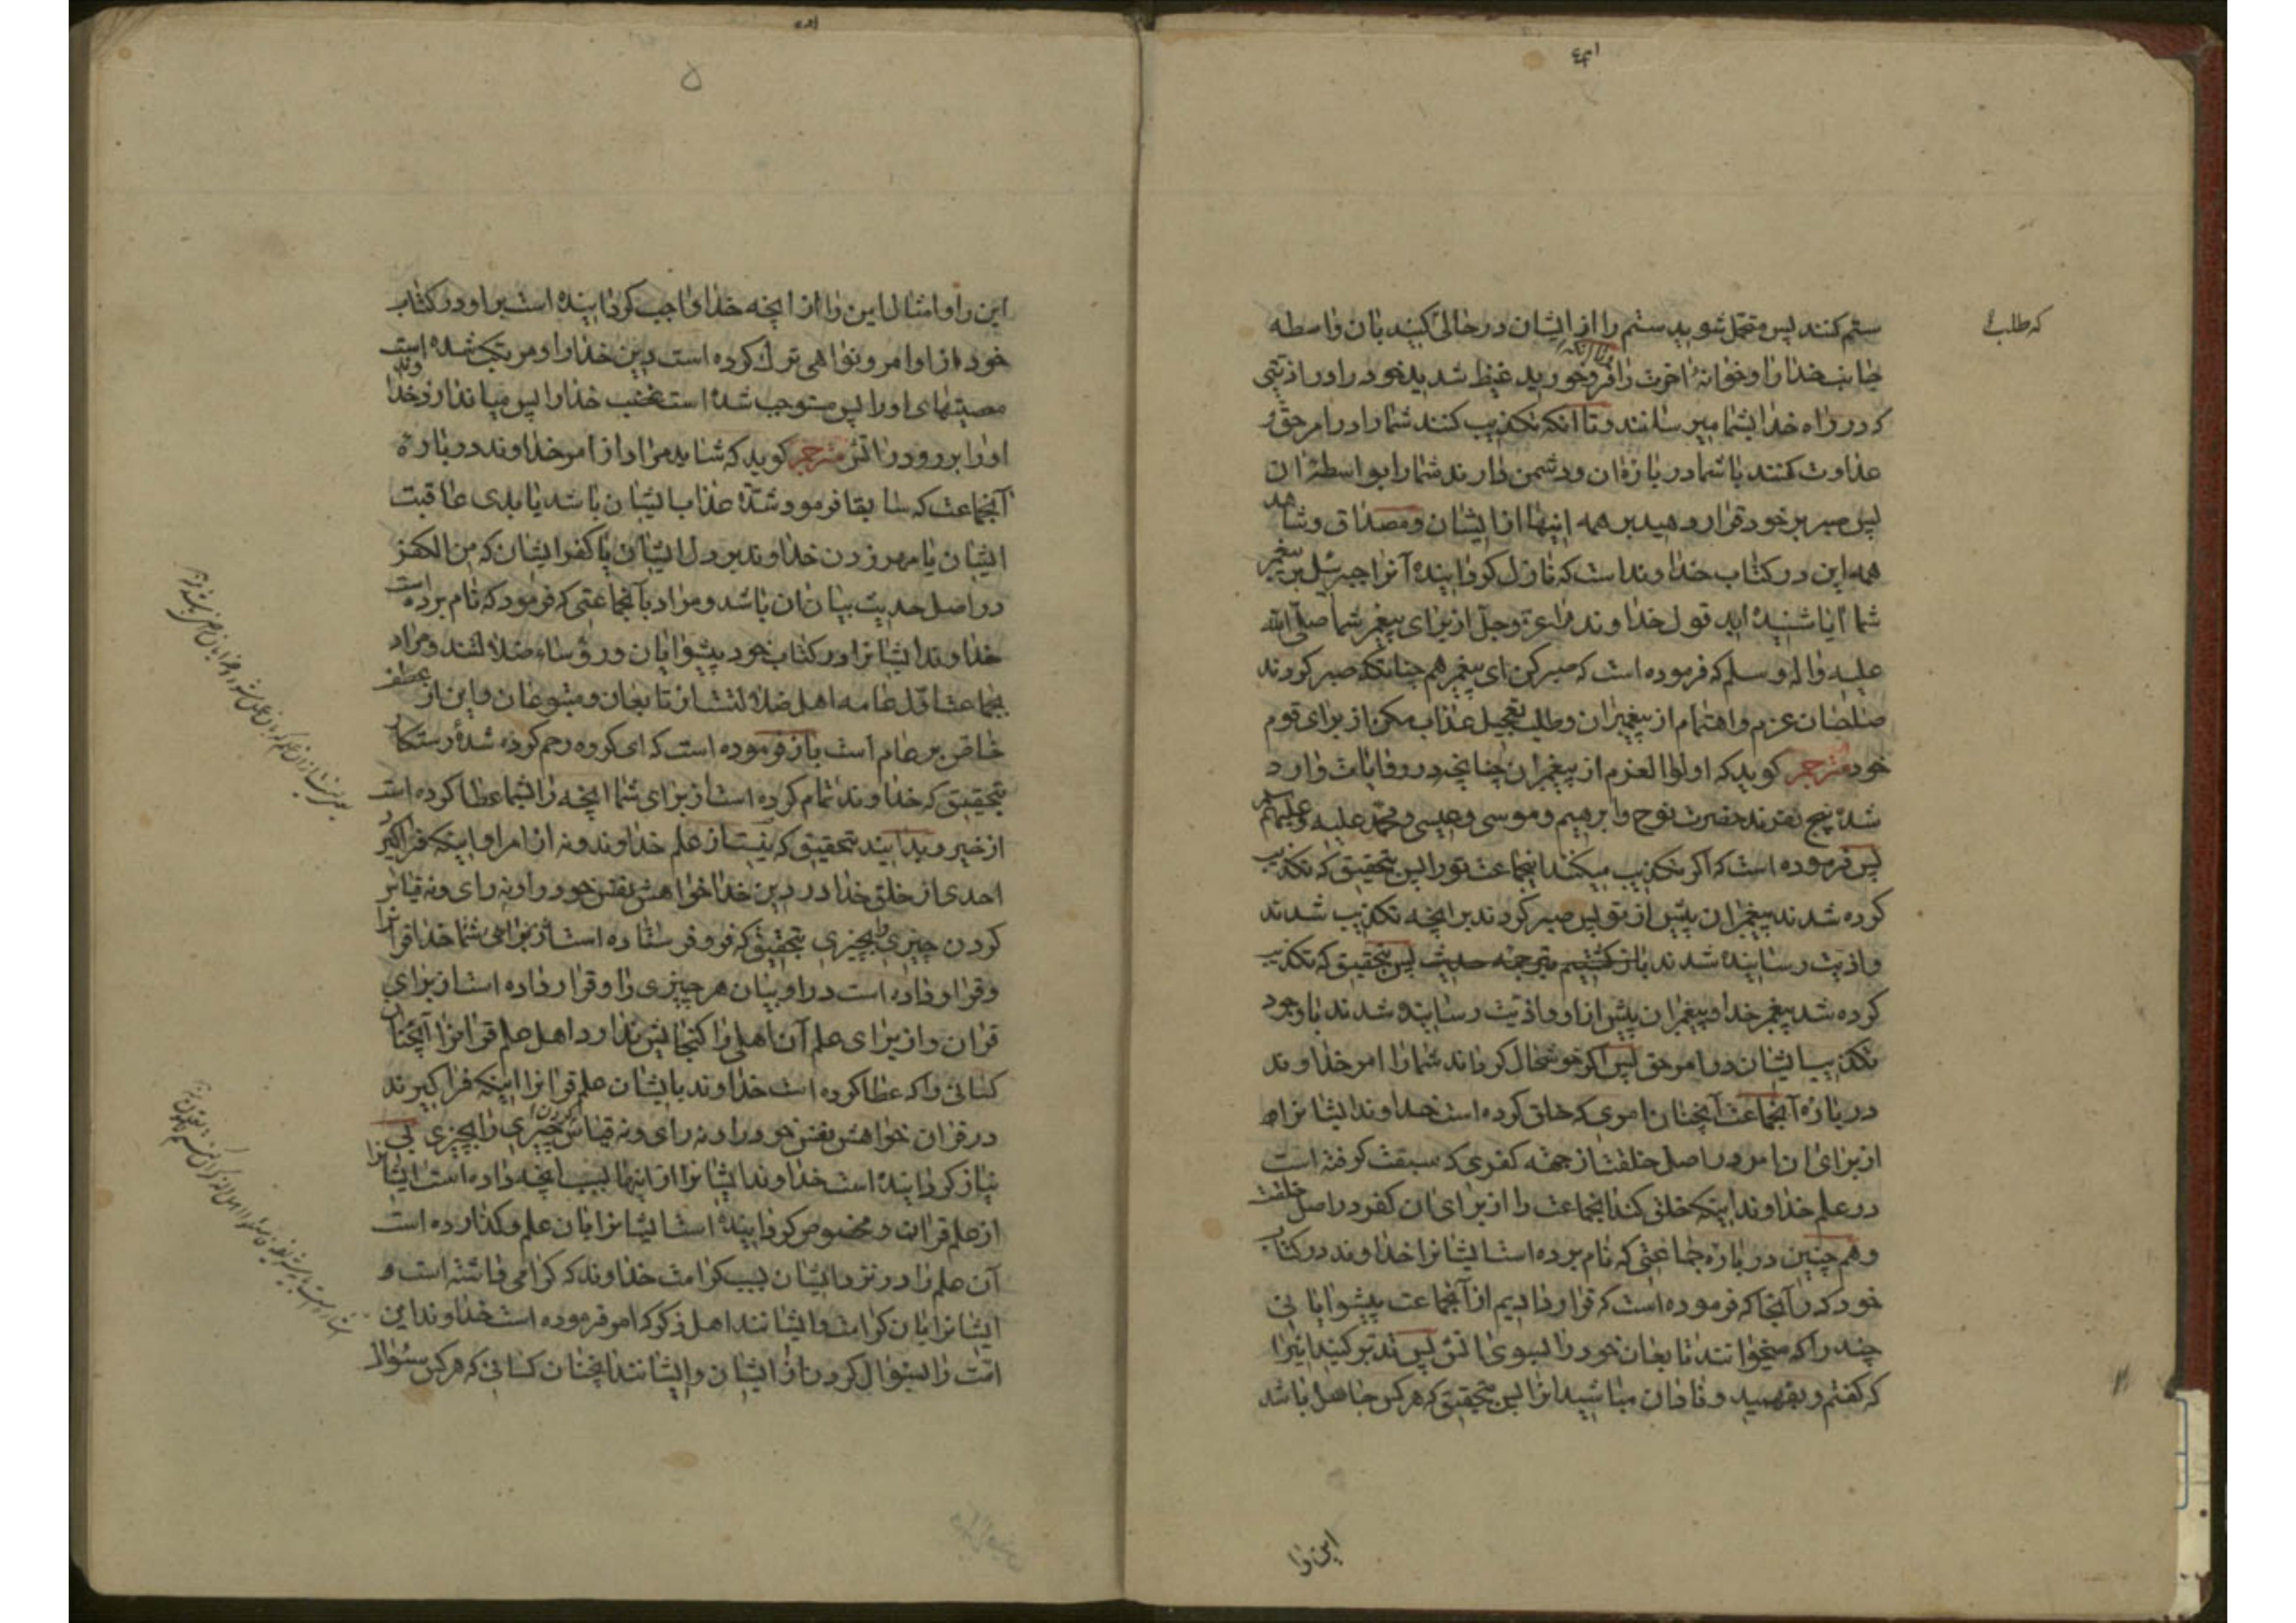 ستم کنند پس متحمل شوید ستم را از ایشان در حالی کنید بان واسطه
که طلب
جانب خدا را و خوانهٔ اخرت را و تا انکه فرو خورید غیظ شدید خود را در اذیتی
که در راه خدا بشما میرسانند و تا انکه تکذیب کنند شما را در امر حق و
عداوت کنند با شما در بارهٔ ان و دشمن دارند شما را بواسطهٔ ان
پس صبر بر خود قرار دهید بر همه اینها از ایشان و مصداق و شاهد
همه این در کتاب خداوند است که نازل کردانیده آنرا جبرئیل بر پیغمبر
شما آیا شنیده اید قول خداوند را عز و جل از برای پیغمبر شما صلی الله
علیه و اله و سلم که فرموده است که صبر کن ای پیغمبر هم چنانکه صبر کردند
صاحبان عزم و اهتمام از پیغمبران و طلب تعجیل عذاب مکن از برای قوم
خود مترجم کوید که اولوا العزم از پیغمبران چنانچه در روایات وارد
شده پنج نفرند حضرت نوح و ابرهیم و موسی و عیسی و محمد علیه و علیهم
پس فرموده است که اکر تکذیب میکنند اینجماعت تو را پس بتحقیق که تکذیب
کرده شدند پیغمبران پیش از تو پس صبر کردند بر انچه تکذیب شدند
و اذیت رسانیده شدند باز کشتیم بترجمه حدیث پس بتحقیق که تکذیب
کرده شد پیغمبر خدا و پیغمبران پیش از او و اذیت رسانیده شدند با وجود
تکذیب ایشان در امر حق پس اکر خوشحال کرداند شما را امر خداوند
در باره آنجماعت آنچنان امری که خلق کرده است خداوند ایشانرا
از برای ان امر در اصل خلقت از جهته کفری که سبقت کرفته است
در علم خداوند اینکه خلق کند انجماعت را از برای ان کفر در اصل خلقت
و هم چنین در باره جماعتی که نام برده است ایشانرا خداوند در کتاب
خود که در آنجا که فرموده است که قرار دادیم از آنجماعت پیشوایانی
چند را که میخوانند تابعان خود را بسوی اتش پس تدبر کنید اینرا
که کفتم و بفهمید و نادان مباشید انرا پس بتحقیق که هر کس جاهل باشد
این را
۵
این را و امثال این را از انچه خدا واجب کردانیده است بر او در کتاب
خود از اوامر و نواهی ترک کرده است دین خدا را و مرتکب شده است
معصیتهای او را پس مستوجب شده است غضب خدا را پس میاندازد خدا
او را بر رو در اتش مترجم کوید که شاید مراد از امر خداوند در باره
آنجماعت که سابقا فرمود شدة عذاب ایشان باشد یا بدی عاقبت
ایشان یا مهر زدن خداوند بر دل ایشان یا کفر ایشان که من الکفر
در اصل حدیث بیان ان باشد و مراد بآنجماعتی که فرمود که نام برده است
خداوند ایشانرا در کتاب خود پیشوایان و رؤساء ضلالتند و مراد
بجماعت اول عامه اهل ضلالتست از تابعان و متبوعان و این از عطف
خاص بر عام است باز فرموده است که ای کروه رحم کرده شدهٔ رستکار
بتحقیق که خداوند تمام کرده است از برای شما انچه را بشما عطا کرده است
از خیر و بدانید بتحقیق که نیست از علم خداوند و نه از امر او اینکه فرا کیرد
احدی از خلق خدا در دین خدا خواهش نفس خود را و نه رای و نه قیاس
کردن چیزی را بچیزی بتحقیق که فرو فرستاده است از برای شما خدا قرانرا
و قرار داده است در او بیان هر چیزی را و قرار داده است از برای
قران و از برای علم آن اهلی را کنجایش ندارد اهل علم قرانرا آنچنان
کسانی را که عطا کرده است خداوند بایشان علم قرانرا اینکه فرا کیرند
در قران خواهش نفس خود را و نه رای و نه قیاس کردن چیزی را بچیزی بی
نیاز کردانیده است خداوند ایشانرا از اینها بسبب انچه داده است ایشانرا
از علم قران و مخصوص کردانیده است ایشانرا بان علم و کذارده است
آن علم را در نزد ایشان بسبب کرامت خداوند که کرامی داشته است
ایشانرا بان کرامت و ایشانند اهل ذکر که امر فرموده است خداوند این
امت را بسئوال کردن از ایشان و ایشانند انچنان کسانی که هر کس سئوال